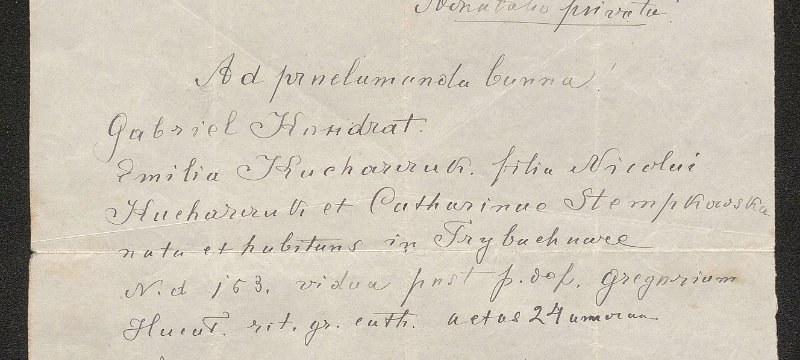 privata
Ad proclamanda banna!
Gabriel Kondrat.
Emilia Kucharczuk. filia Nicolai
Kucharczuk et Catharinae Stempkowska
nata et habitans in Trybuchowce
N.d 153. vidua post p. def. Gregorium
rit. gr. cath. aetas 24 annorum